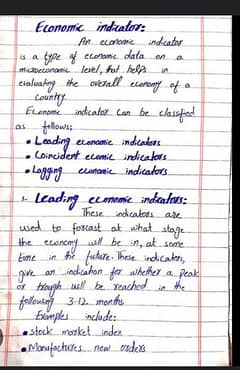 Economic indicator:
An economic indicator
is a type of economic data on a
microeconomic level, that helps in
evaluating the overall economy of a
country.
Economic indicator can be classfied
as follows:
• Leading economic indicators
• Coincident ecomic indicators
• Lagging economic indicators
1- Leading economic indicators:
These indicators are
used to forcast at what stage
the economy will be in, at some
time in the future. These indicators,
give an indication for whether a peak
or trough will be reached in the
following 3-12 months
Examples include:
• Stock market index
• Manufactures new orders